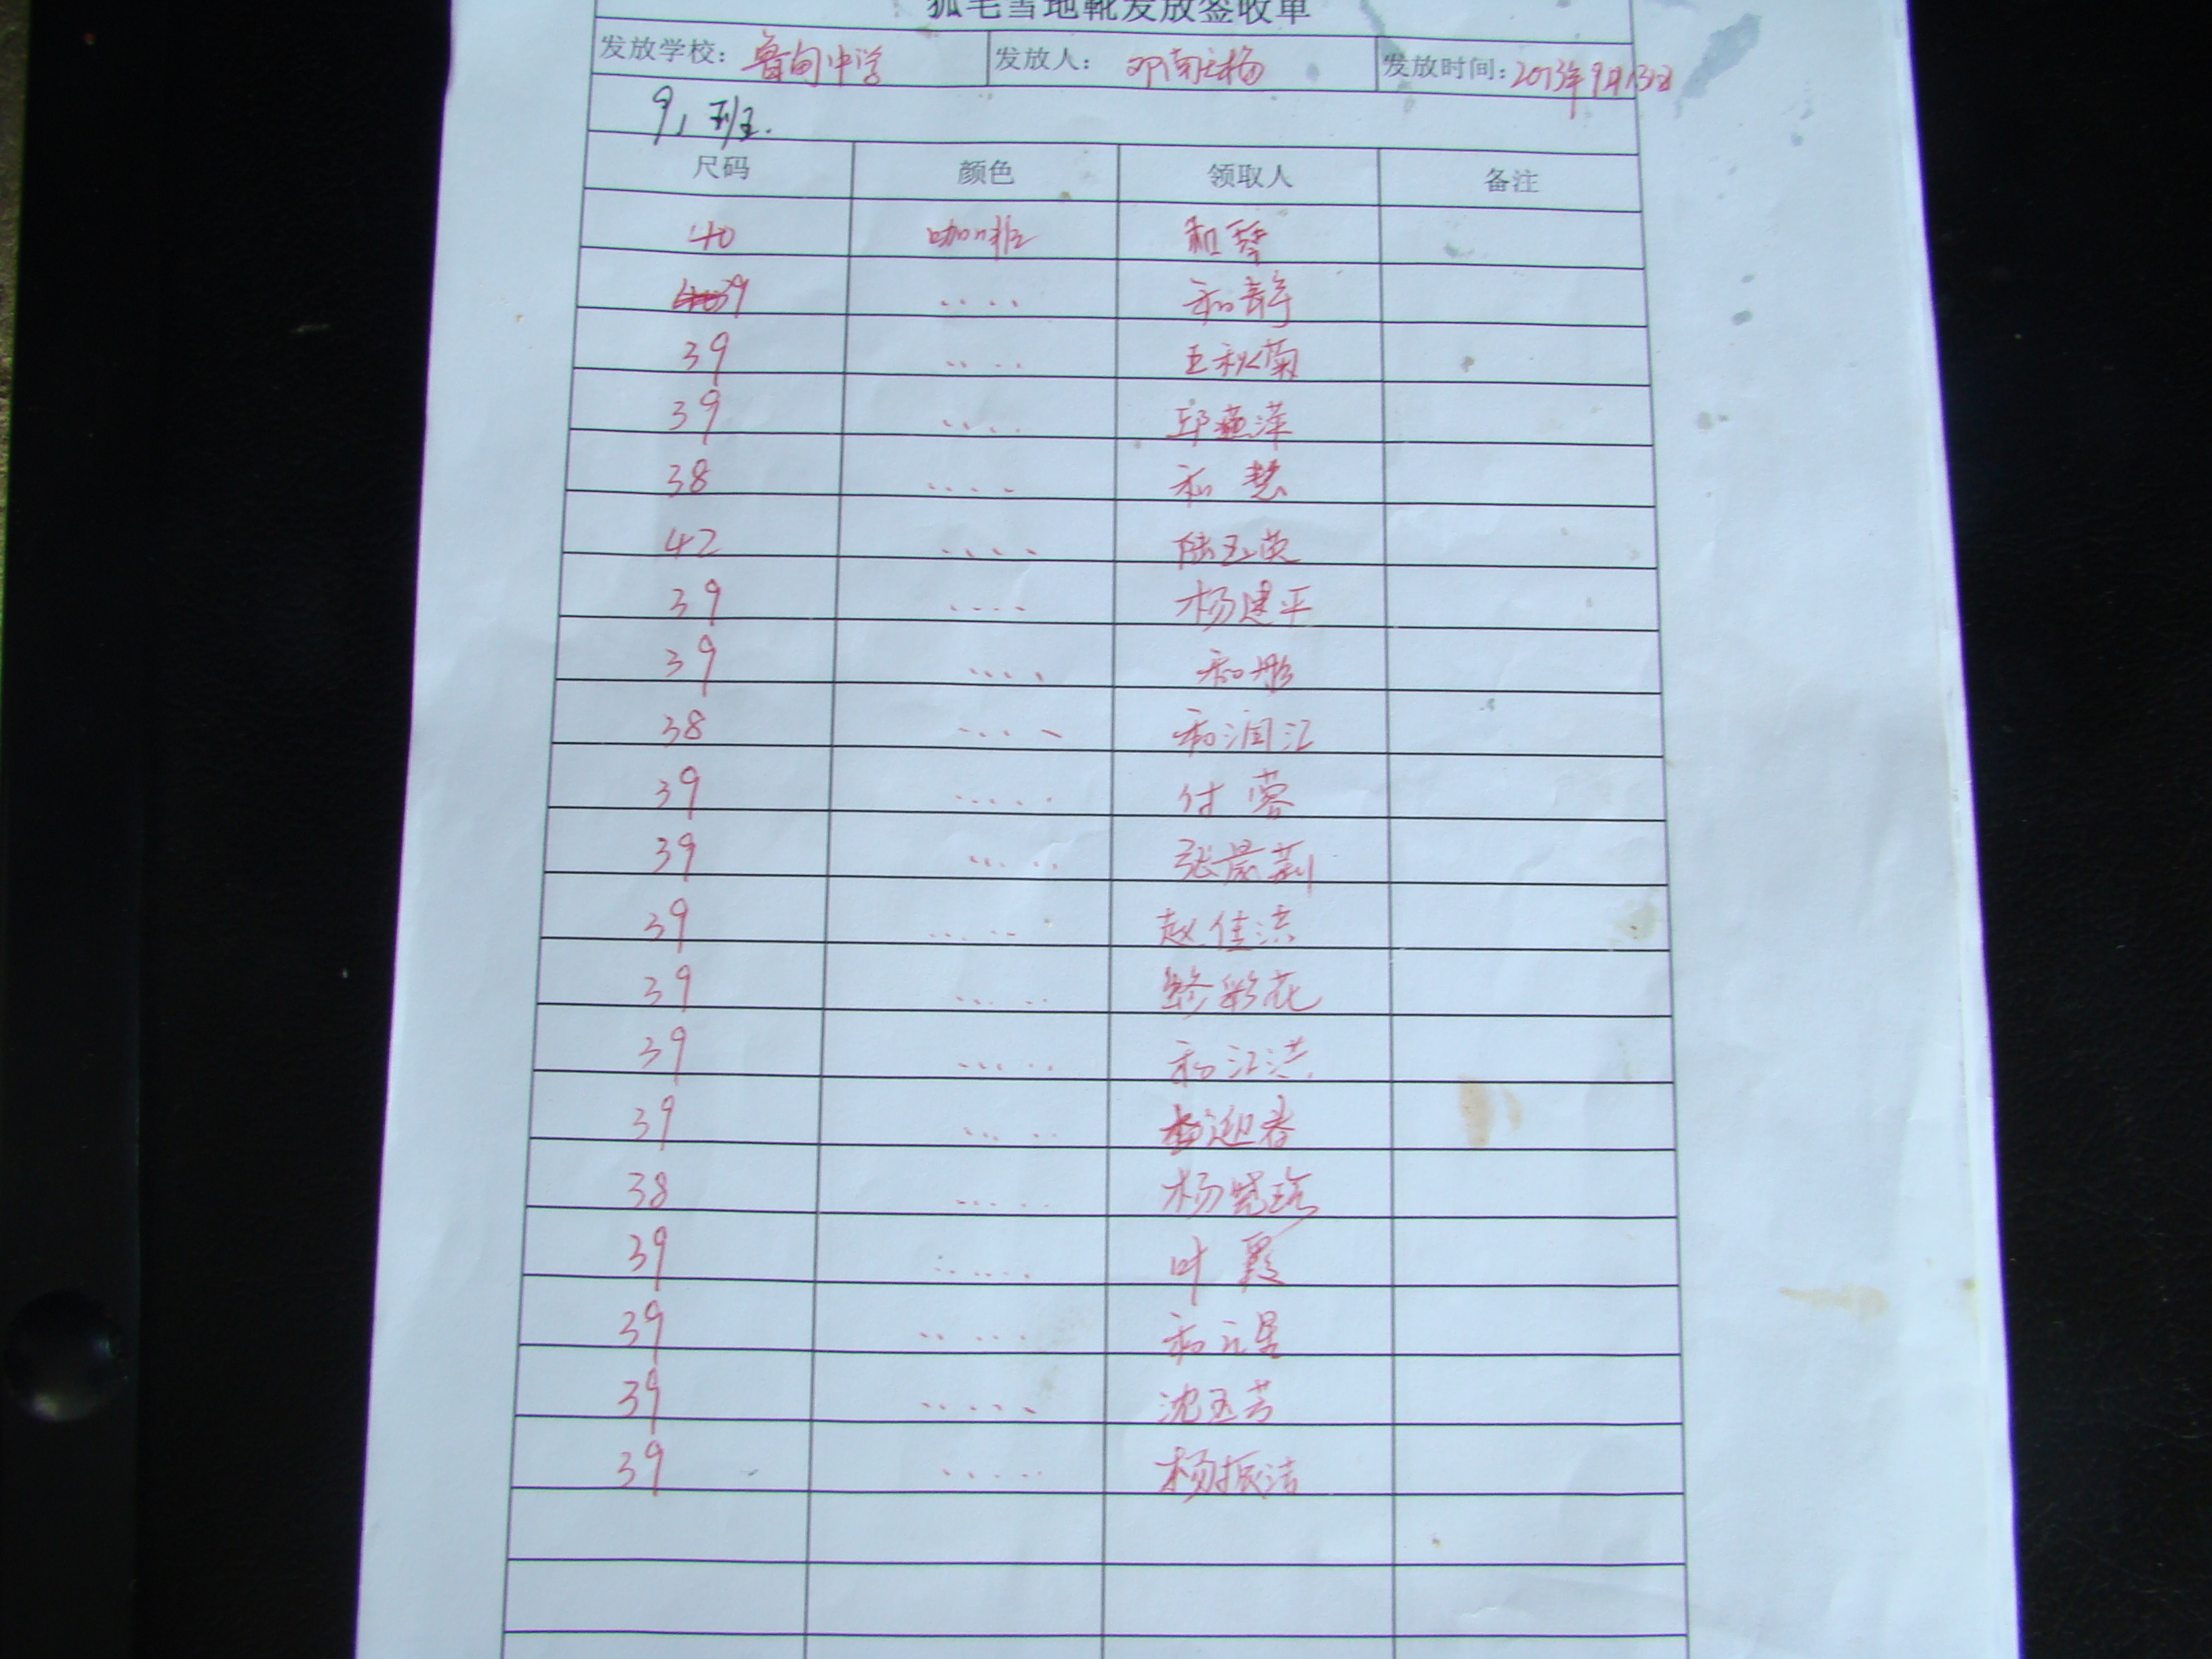 狐毛雪地靴发放签收单
发放学校: 鲁甸中学 发放人: 发放时间: 2013年9月13日
91班.
尺码 颜色 领取人 备注
40 咖啡 和琴
39 ‥‥ 和静
39 ‥‥ 王秋菊
39 ‥‥ 邱燕萍
38 ‥‥ 和慧
42 ‥‥ 陆玉英
39 ‥‥ 杨建平
39 ‥‥ 和彤
38 ‥‥ 和润江
39 ‥‥ 付蓉
39 ‥‥ 张晨莉
39 ‥‥ 赵佳洪
39 ‥‥ 彩花
39 ‥‥ 和江洪
39 ‥‥ 杨迎春
38 ‥‥ 杨晓
39 ‥‥ 叶霞
39 ‥‥ 和元星
39 ‥‥ 沈玉芳
39 ‥‥ 杨振洁